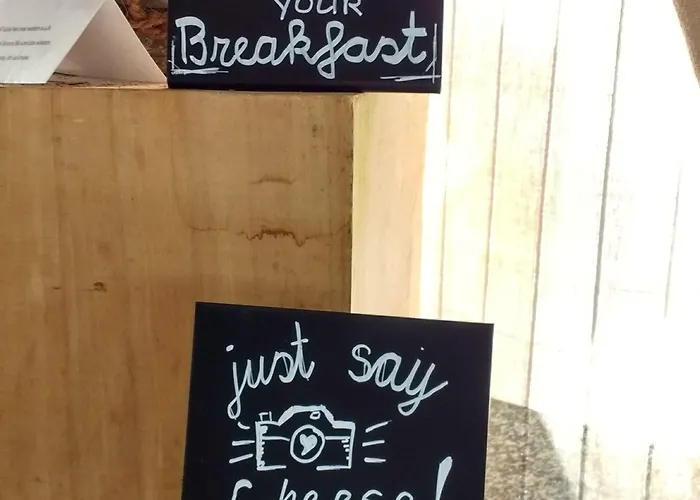 YOUR
Breakfast
just say
Cheese!